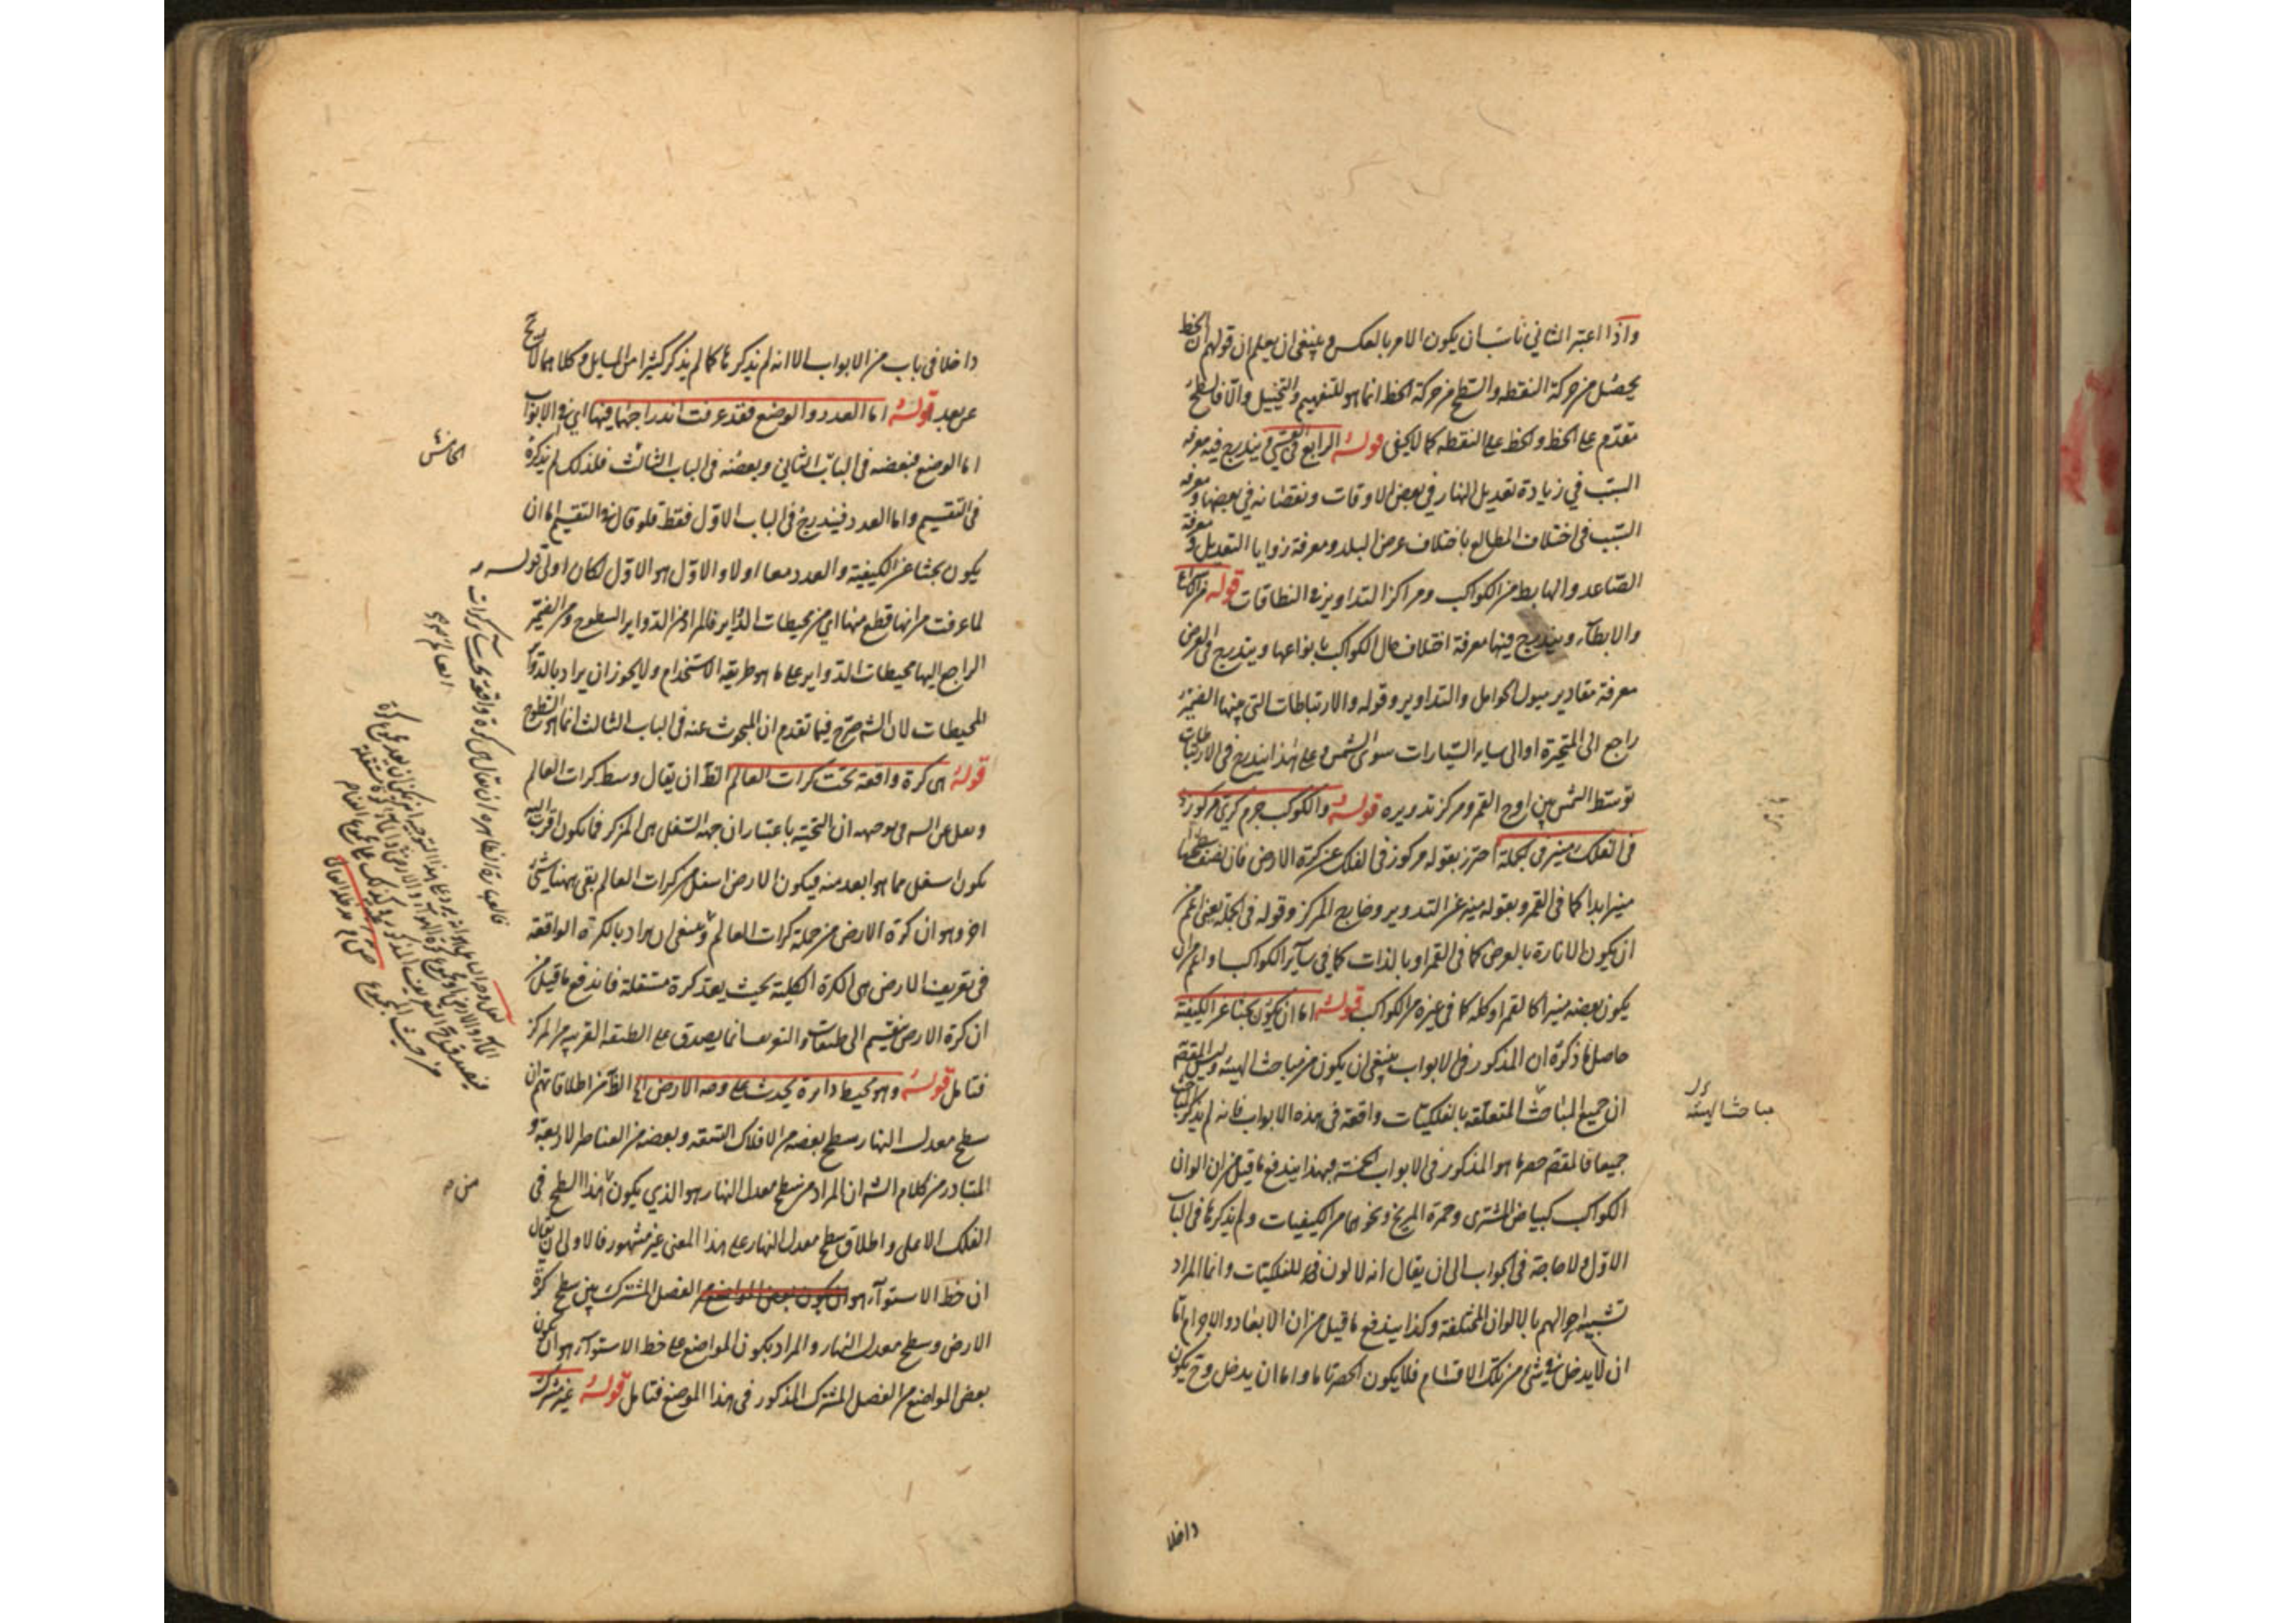 واذا اعتبر الثاني ناسب ان يكون الامر بالعكس وينبغي ان يعلم ان قولهم ان الخط
يحصل من حركة النقطة والسطح من حركة الخط انما هو للتفهيم والتخييل والا فالسطح
مقدم على الخط والخط على النقطة كما لا يخفى قوله الرابع في ويندرج فيه معرفة
السبب في زيادة تعديل النهار في بعض الاوقات ونقصانه في بعضها ومعرفة
السبب في اختلاف المطالع باختلاف عرض البلد ومعرفة زوايا التعديل ومعرفة
الصاعد والهابط من الكواكب ومراكز التداوير في النطاقات قوله
والابطاء ويندرج فيها معرفة اختلاف حال الكواكب بانواعها ويندرج في العرض
معرفة مقادير ميول الحوامل والتداوير وقوله والارتباطات التي بينها الضمير
راجع الى المتحيرة او الى ساير السيارات سوى الشمس وعلى هذا يندرج في الارتباطات
توسط الشمس بين اوج القمر ومركز تدويره قوله والكوكب جرم كري مركوز
في الفلك منير في الجملة احترز بقوله مركوز في الفلك عن كرة الارض فان نصف سطحها
منير ابدا كما في القمر وبقوله منير عن التدوير وخارج المركز وقوله في الجملة يعني اعم من
ان يكون الانارة بالعرض كما في القمر او بالذات كما في سائر الكواكب واعم من ان
يكون بعضه منيرا كالقمر او كله كما في غيره من الكواكب قوله اما ان يكون بحثا عن الكيفية
حاصل ما ذكره ان المذكور في الابواب ينبغي ان يكون من مباحث الهيئة وليس المقصود
ان جميع المباحث المتعلقة بالفلكيات واقعة في هذه الابواب فانه لم يذكر
جميعا فالمقصود حصر ما هو المذكور في الابواب الخمسة وبهذا يندفع ما قيل من ان الوان
الكواكب كبياض المشترى وحمرة المريخ ونحوهما من الكيفيات ولم يذكرها في الباب
الاول ولا حاجة في الجواب الى ان يقال انه لا لون للفلكيات وانما المراد
تشبيه احوالهم بالالوان المختلفة وكذا يندفع ما قيل من ان الابعاد والاجرام اما
ان لا يدخل في شئ من تلك الاقسام فلا يكون الحصر تاما واما ان يدخل وح يكون
مباحث الهيئة
داخلا
داخلا في باب من الابواب الا انه لم يذكرها كما لم يذكر كثيرا من المسايل وكلاهما لا يخ
عن بعد قوله اما العدد والوضع فقد عرفت اندراجهما فيها اي في الابواب
اما الوضع فبعضه في الباب الثاني وبعضه في الباب الثالث فلذلك لم يذكره
في التقسيم واما العدد فيندرج في الباب الاول فقط فلو قال في التقسيم اما ان
يكون بحثا عن الكيفية والعدد معا اولا والاول هو الاول لكان اولى قوله
لما عرفت من انها قطع منها اي من محيطات الدواير فالمراد من الدواير السطوح ومن الضمير
الراجع اليها محيطات الدواير على ما هو طريقة الاستخدام ولا يجوز ان يراد بالدواير
المحيطات لان الشه صرح فيما تقدم ان المبحوث عنه في الباب الثالث انما هو السطوح
قوله هى كرة واقعة تحت كرات العالم الظ ان يقال وسط كرات العالم
توجهه ان التحتية باعتبار ان جهة السفل هى المركز فما يكون اقرب اليه
يكون اسفل مما هو ابعد منه فيكون الارض اسفل من كرات العالم بقي ههنا شئ
اخر وهو ان كرة الارض من جملة كرات العالم وينبغي ان يراد بالكرة الواقعة
في تعريف الارض هى الكرة الكلية بحيث يعد كرة مستقلة فاندفع ما قيل من
ان كرة الارض ينقسم الى طبقات والتعريف انما يصدق على الطبقة القريبة من المركز
فتامل قوله وهو محيط دايرة يحدث على وجه الارض الخ الظ من اطلاقاتهم ان
سطح معدل النهار سطح بعضه من الافلاك التسعة وبعضه من العناصر الاربعة و
المتبادر من كلام الشه ان المراد من سطح معدل النهار هو الذي يكون هذا السطح في
الفلك الاعلى واطلاق سطح معدل النهار على هذا المعنى غير مشهور فالاولى ان يقال
ان خط الاستوآء هو الفصل المشترك بين سطح كرة
الارض وسطح معدل النهار والمراد بكون المواضع على خط الاستوآء هو ان يكون
بعض المواضع من الفصل المشترك المذكور في هذا الموضع فتامل قوله غير مشترك